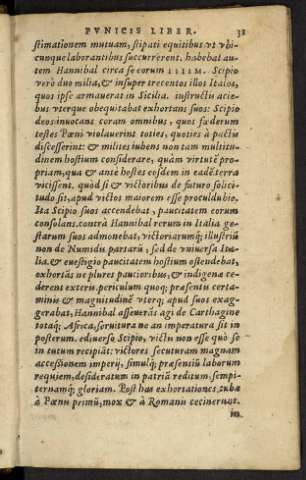 PVNICIS LIBER. 31
stimationem mutuam, stipati equitibus vt vbi-
cunque laborantibus succurrerent. habebat au-
tem Hannibal circa se eorum IIIIM. Scipio
verò duo milia, & insuper trecentos illos Italos,
quos ipse armauerat in Sicilia. instructis acie-
bus vterque obequitabat exhortans suos: Scipio
deos inuocans coram omnibus, quos fœderum
testes Pœni violauerint toties, quoties à pactis
discesserint: & milites iubens non tam multitu-
dinem hostium considerare, quàm virtutē pro-
priam, qua & ante hostes eosdem in eadē terra
vicissent. quòd si & victoribus de futuro solici-
tudo sit, apud victos maiorem esse proculdubio.
Ita Scipio suos accendebat, paucitatem eorum
consolans. contrà Hannibal rerum in Italia ge-
starum suos admonebat, victoriarumq; illustriū
non de Numidis partarū, sed de vniuersa Ita-
lia. & euestigio paucitatem hostium ostendebat,
exhortās ne plures paucioribus, & indigenæ ce-
derent exteris. periculum quoq; præsentis certa-
minis & magnitudinē vterq; apud suos exag-
gerabat, Hannibal asseuerās agi de Carthagine
totaq; Africa, seruitura ne an imperatura sit in
posterum. ediuerso Scipio, victis non esse quò se
in tutum recipiāt: victores secuturam magnam
accessionem imperij, simulq; præsentiū laborum
requiem, desideratum in patriā reditum, sempi-
ternamq; gloriam. Post has exhortationes, tubæ
à Pœnis primū, mox & à Romanis cecinerunt.
in